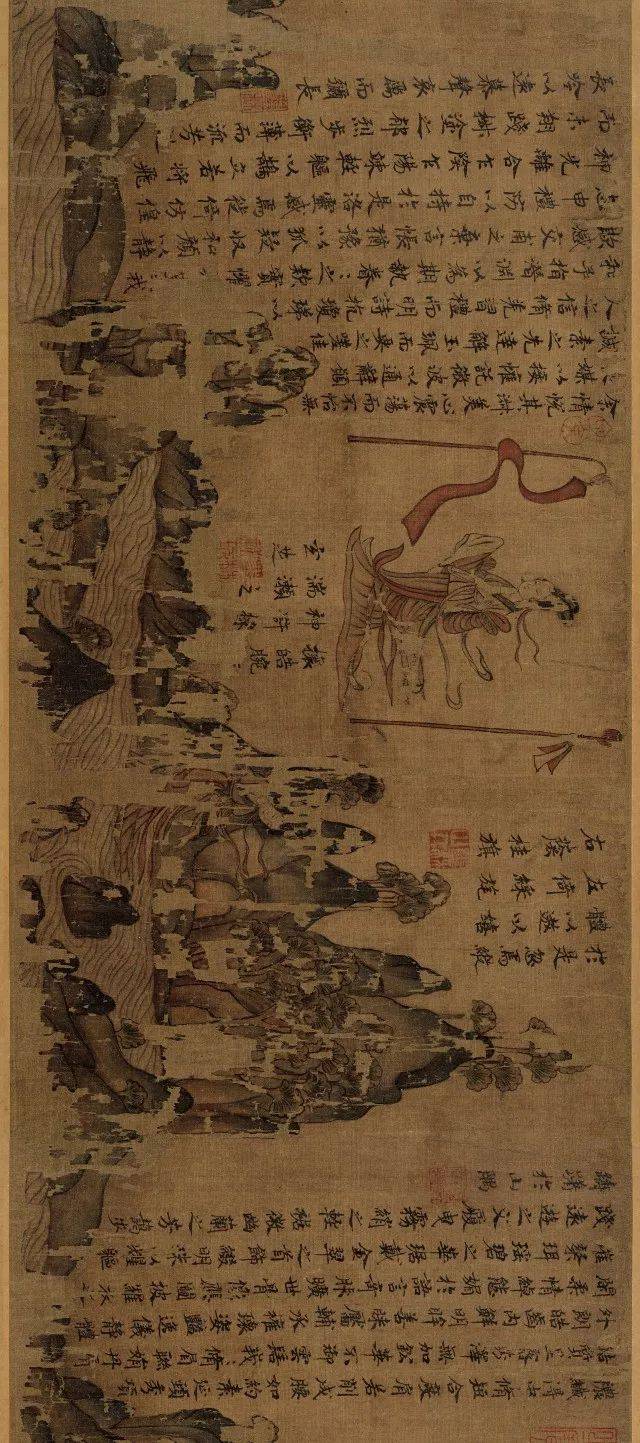 穠纖得中脩短合度肩若削成腰如約素延頸秀項
皓質呈露芳澤無加鉛華不御雲髻峨峨脩眉聯娟丹脣
外朗皓齒內鮮明眸善睞靨輔承權瓌姿豔逸儀靜體
閑柔情綽態媚於語言奇服曠世骨像應圖披羅衣
璀粲珥瑤碧之華琚戴金翠之首飾綴明珠以耀軀
踐遠遊之文履曳霧綃之輕裾微幽蘭之芳藹步
躊躇於山隅
於是忽焉縱
體以遨以嬉
左倚綵旄
右蔭桂旗
攘皓腕
神滸採
湍瀨之
玄芝
余情悅其淑美心震蕩而不怡無
媒以接懽託微波以通辭願
誠素之先達解玉珮而要之嗟佳
人之信脩羌習禮而明詩抗瓊珶以
和予指潛淵以為期執眷眷之款實懼 我
欺感交甫之棄言悵猶豫以狐疑收和顏以靜
志申禮防以自持於是洛靈感焉徙倚彷徨
神光離合乍陰乍陽竦輕軀以鶴立若將飛
而未翔踐椒塗之郁烈步蘅薄而流芳
長吟以遠慕聲哀厲而彌長